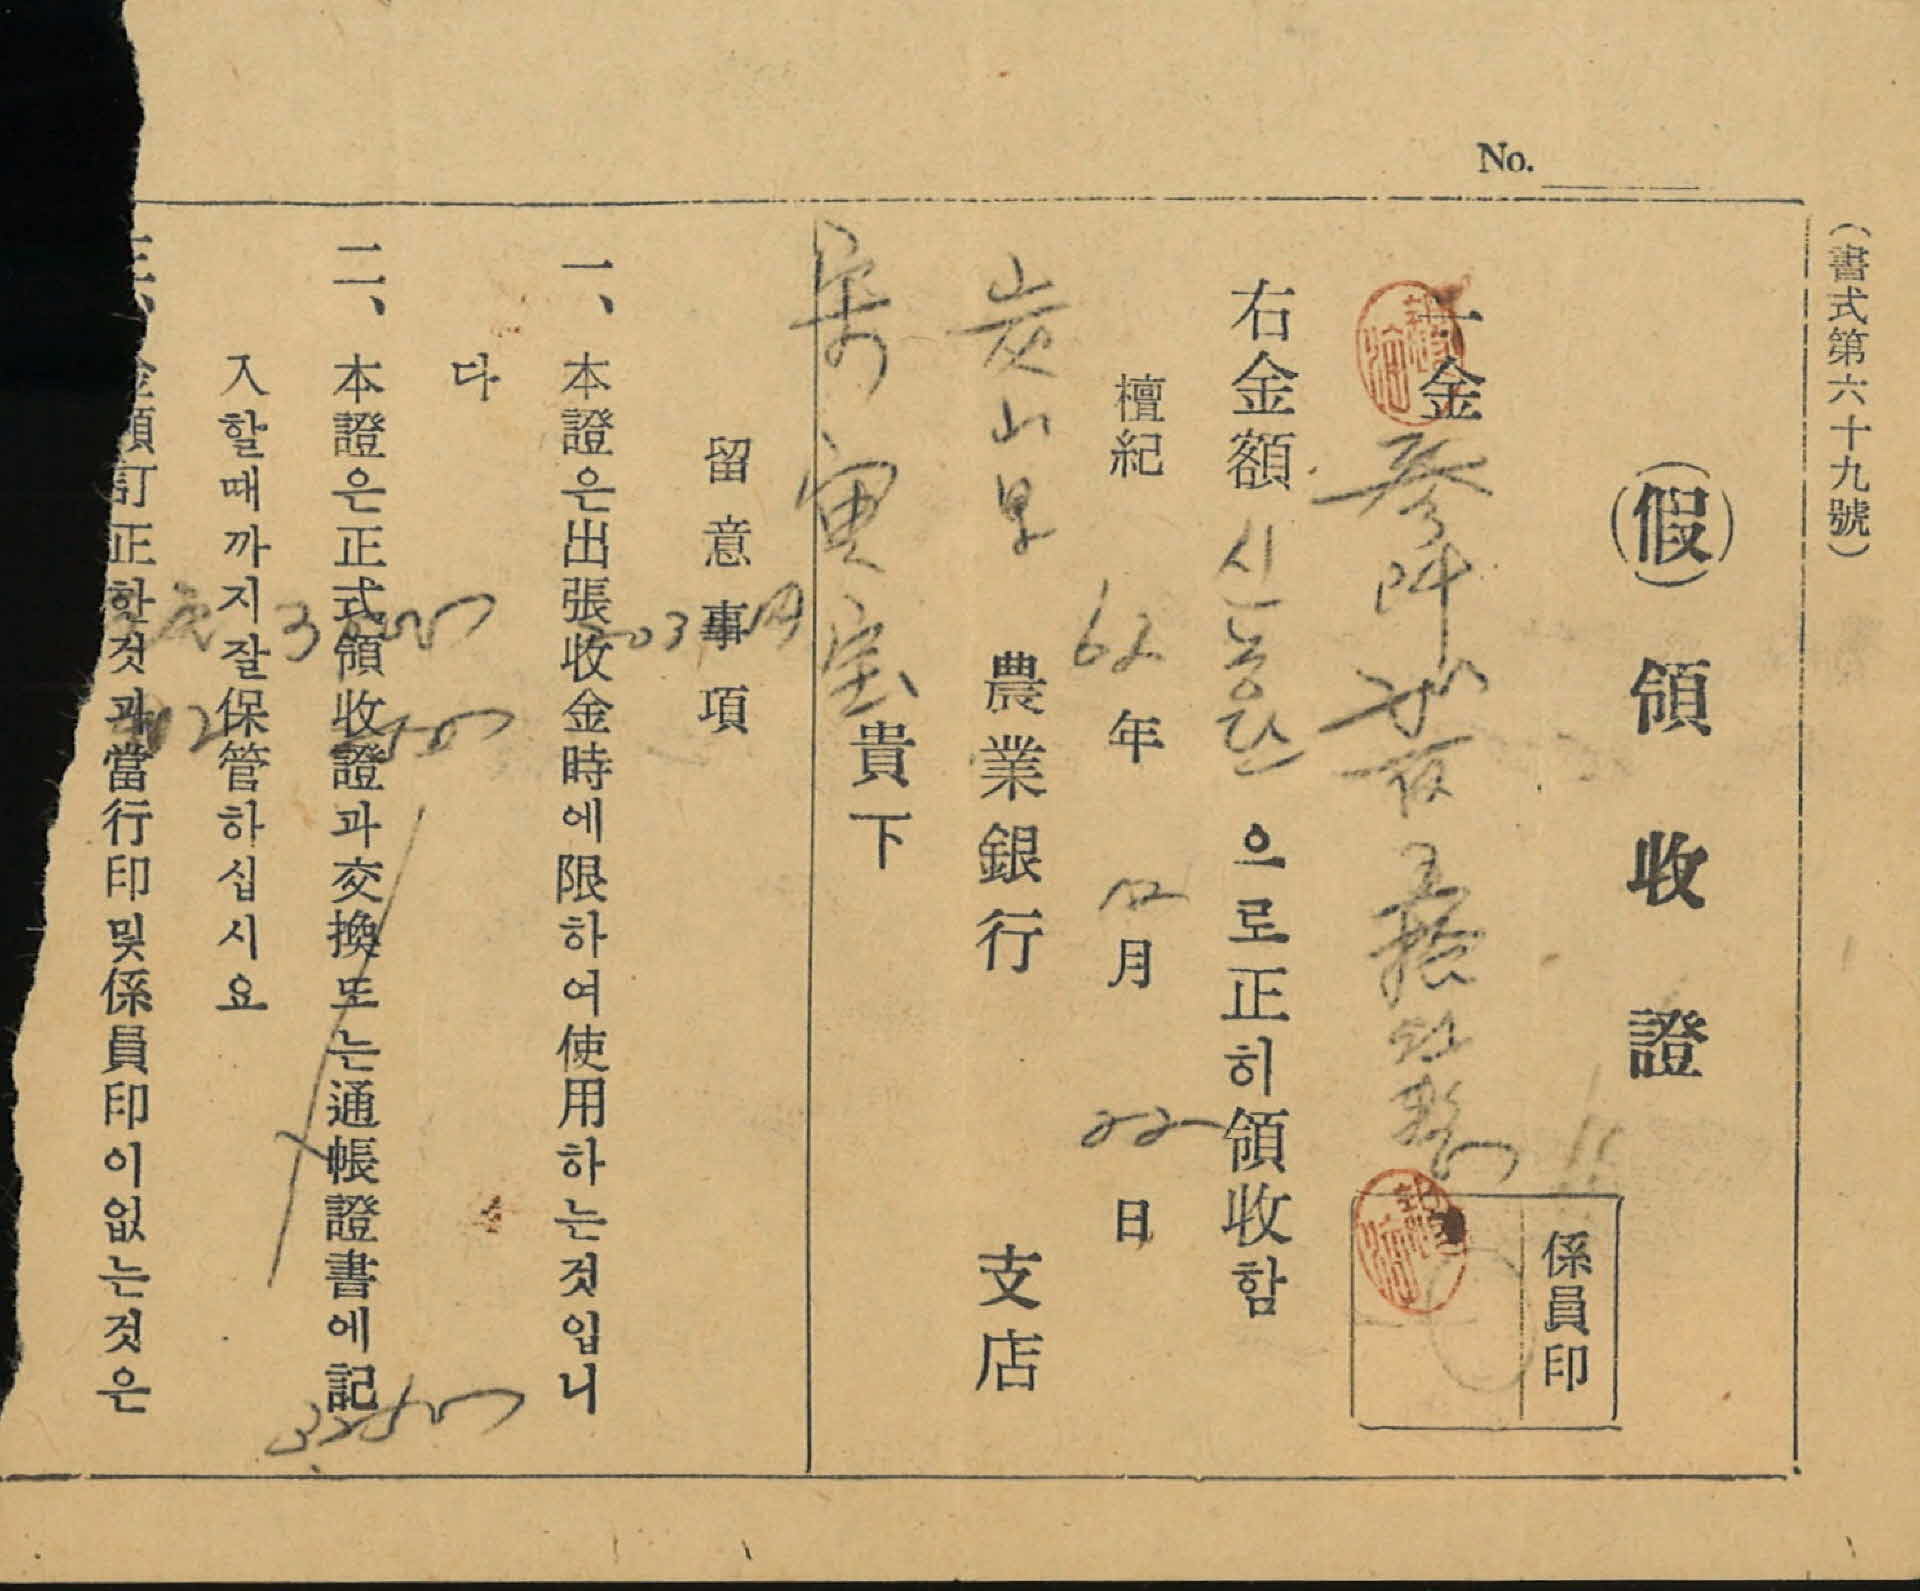 No.
(書式第六十九號)
(假)領收證
係員印
一金 參阡 百五拾 
右金額 신농민 으로正히領收함
檀紀 62年 12月 22日
農業銀行 支店
炭山里
寅 貴下
留意事項
一、本證은出張收金時에限하여使用하는것입니
다
二、本證은正式領收證과交換또는通帳證書에記
入할때까지잘保管하십시요
三、金額訂正한것과當行印및係員印이없는것은